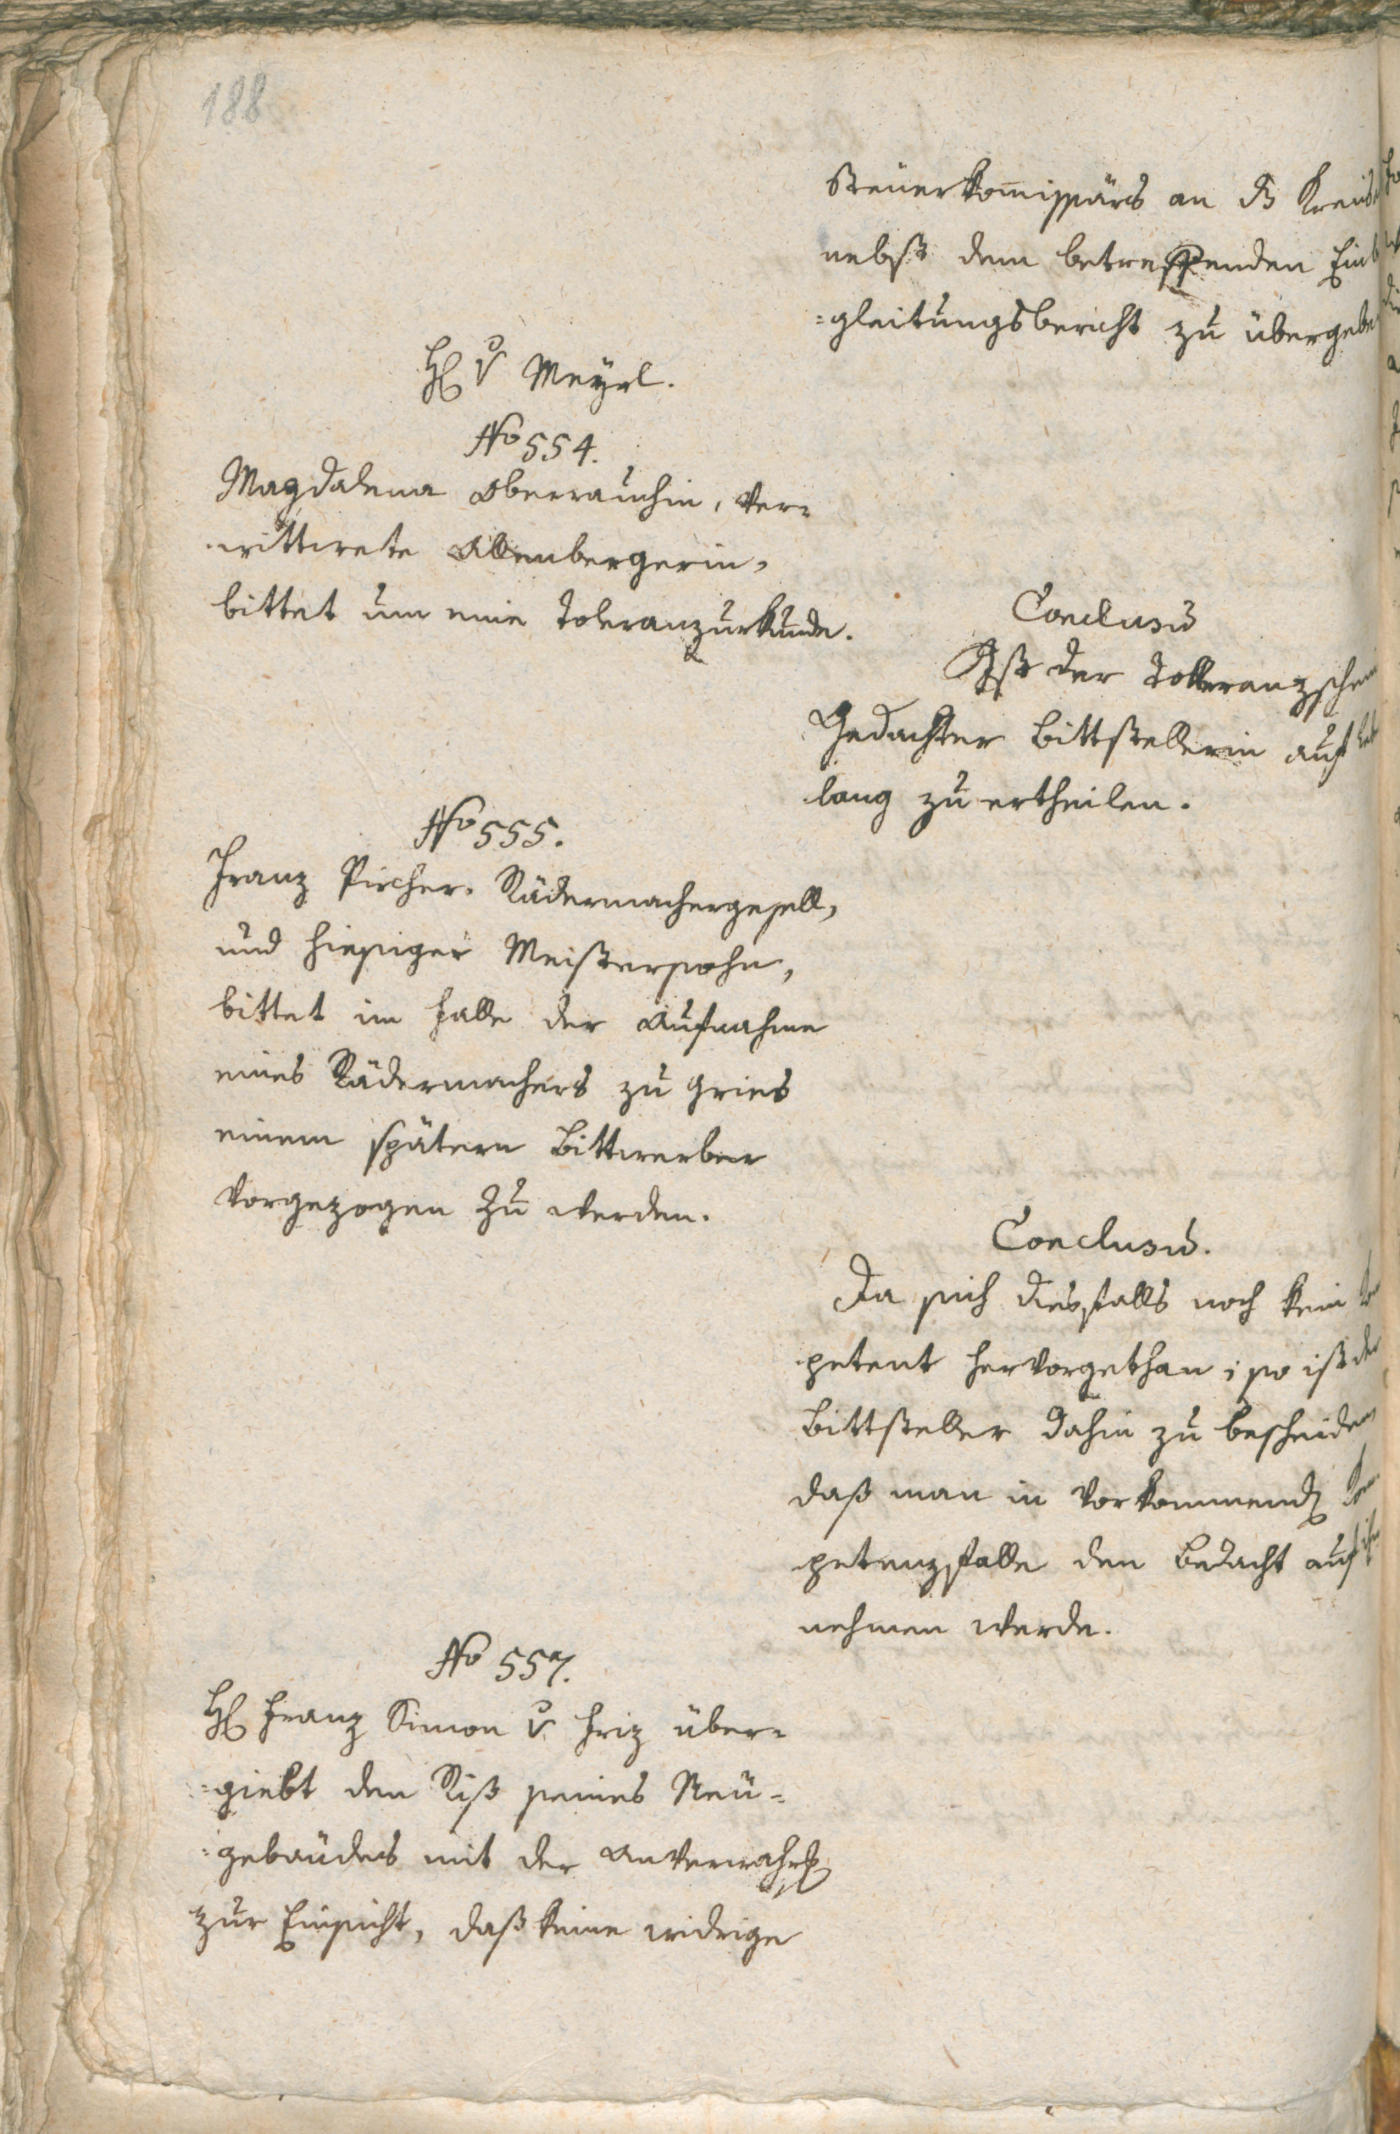 188
Steuerkom̄issärs an
nebst dem betreffenden
=gleitungsbericht zu übergebe
H v Meyrl.
No 554.
Magdalena Oberrauchin, ver=
wittwete Allenbergerin,
bittet um eine Toleranzurkunde.
Conclusū
Ist der Tolleranzschein
Gedachter Bittstellerin auf
lang zu ertheilen.
No 555.
Franz Pircher. Rädermachergesell,
und hiesiger Meisterssohn,
bittet im Falle der Aufnahme
eines Rädermachers zu Gries
einem spätern Bittwerber
vorgezogen zu werden.
Conclusū.
Da sich diesfalls noch kein
petent hervorgethan; so ist der
Bittsteller dahin zu bescheiden
daß man in vorkommend
petenzfalle den Bedacht auf
nehmen werde.
No 557.
H Franz Simon v. Friz über=
=giebt den Riß seines Neu=
=gebäudes mit der
zur Einsicht, daß keine widrige